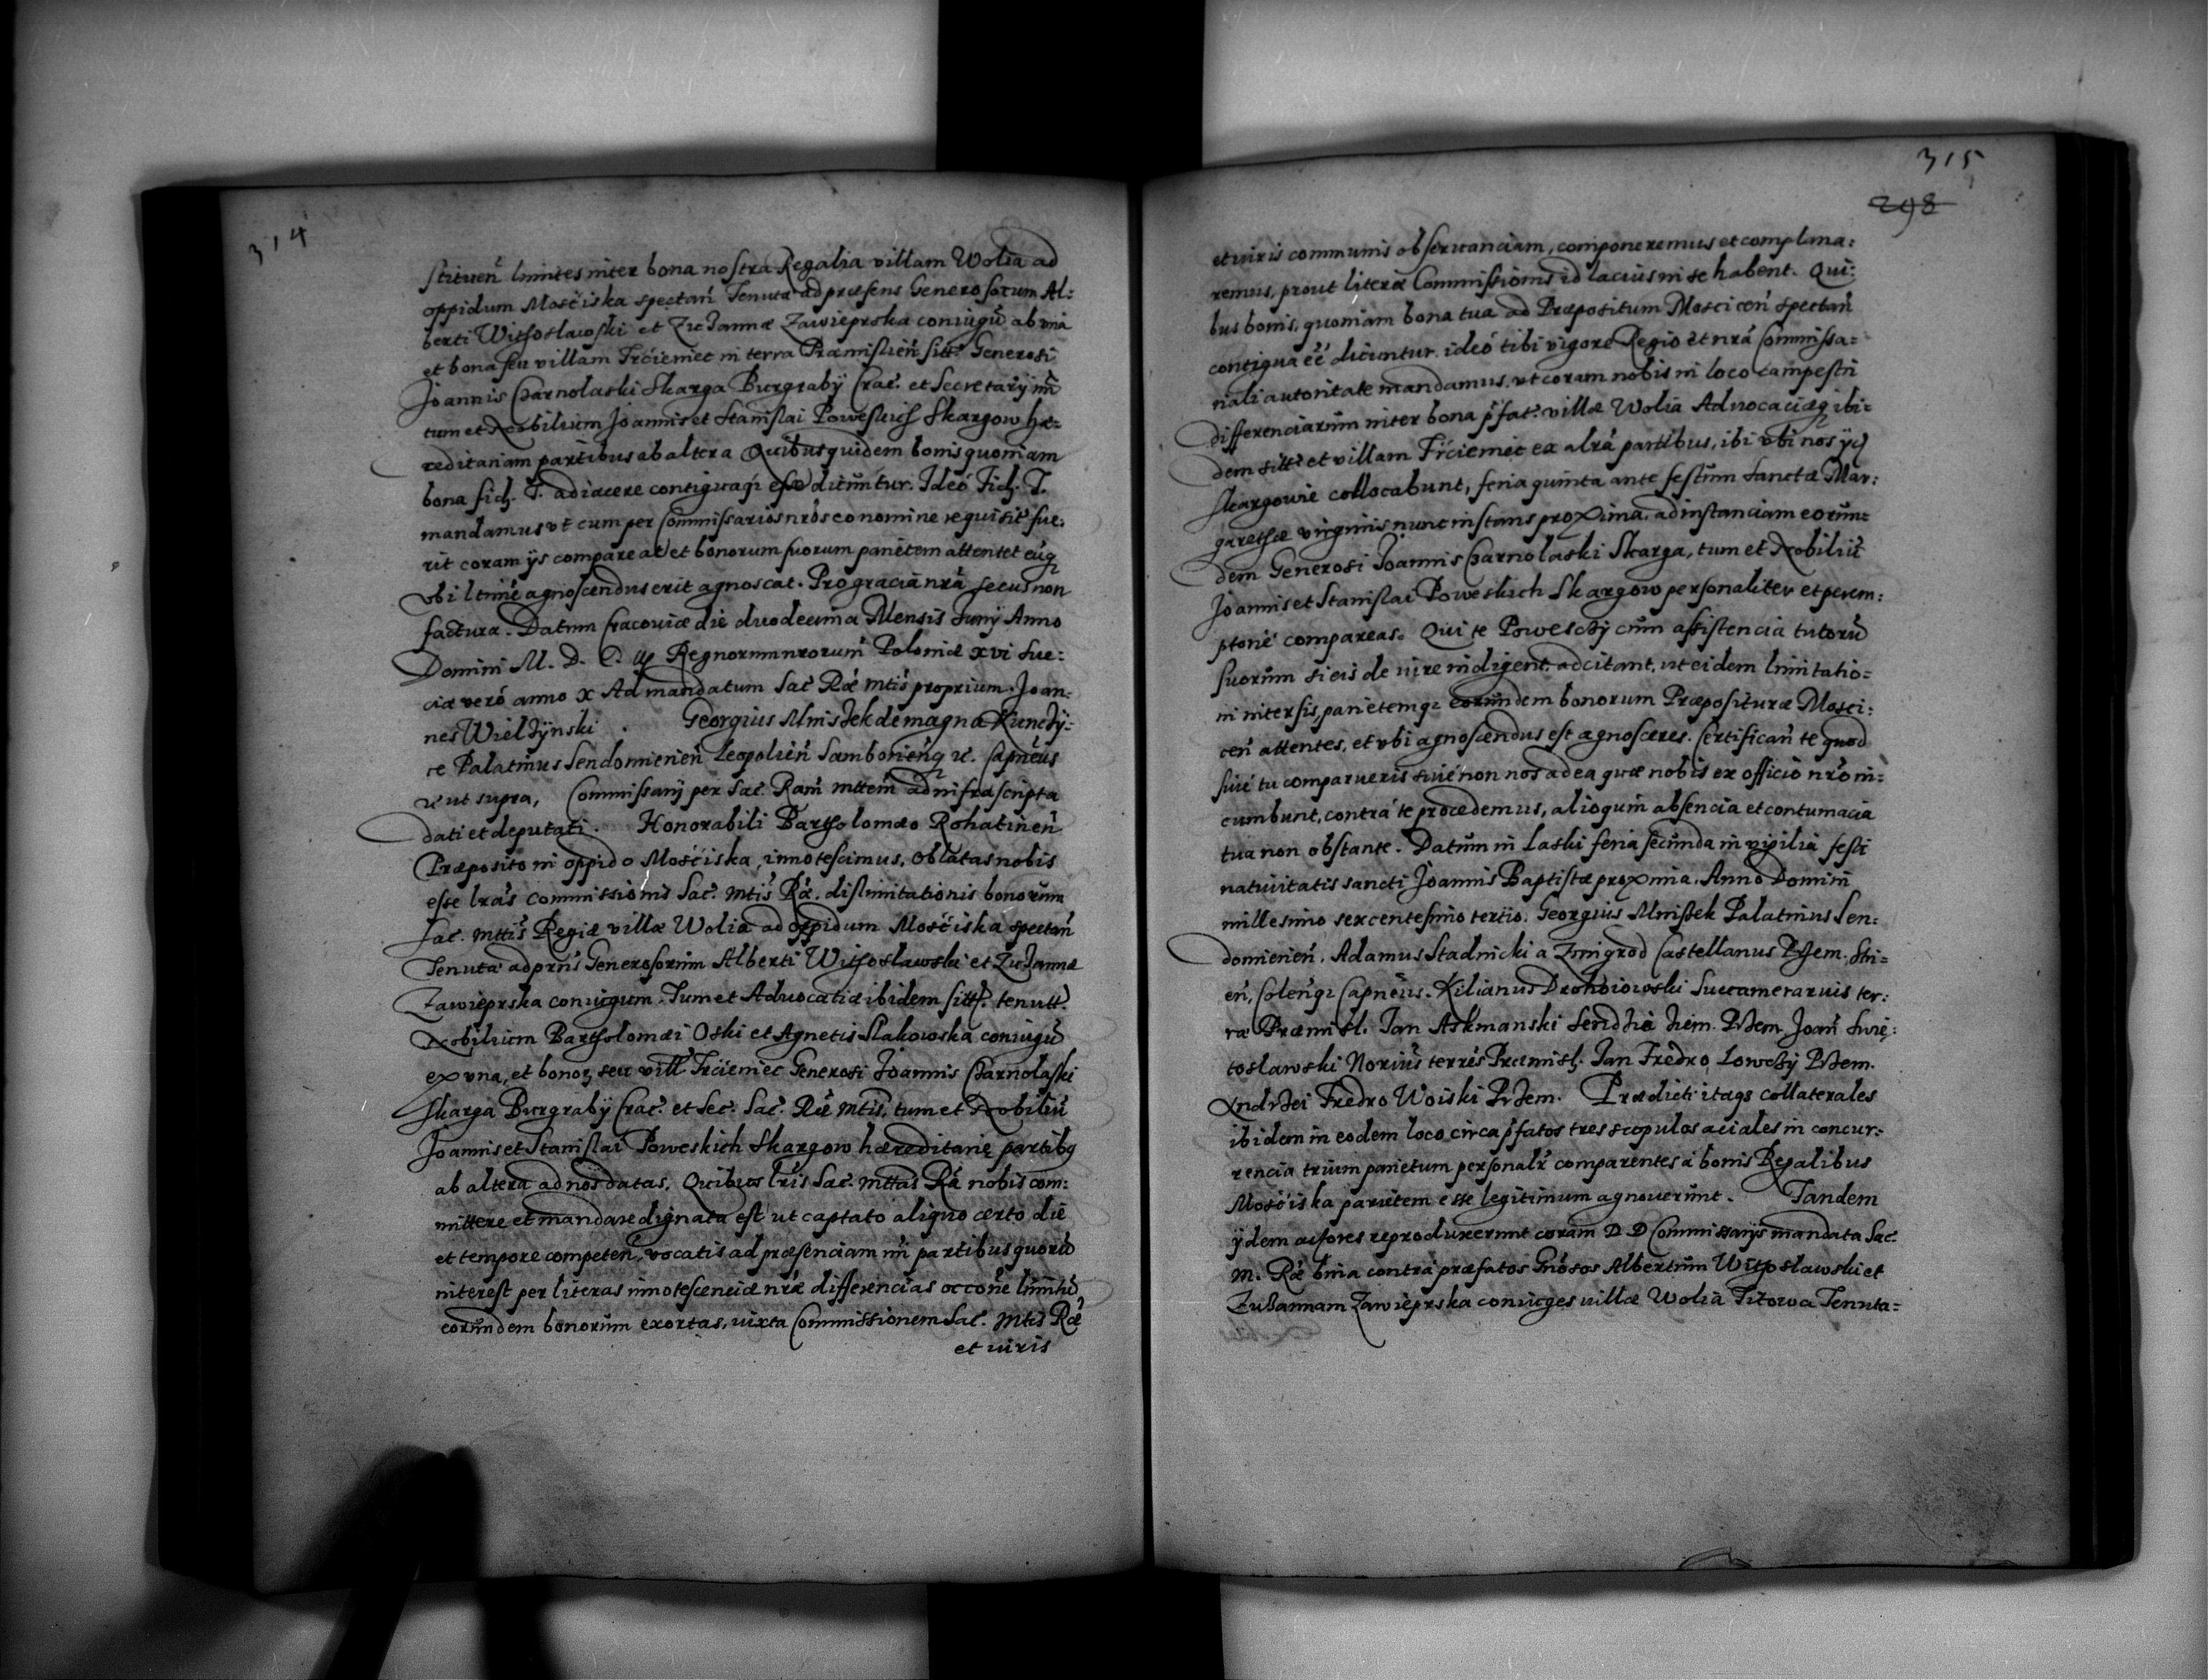 314
stituen̄ limites inter bona nostra Regalia villam Wolia ad
oppidum Mościska spectan̄ Tenutæ ad præsens Generosorum Al=
berti Withoslawski et Zuzannæ Zawieprska coniugū ab vna
et bona seu villam Trcieniec in terra Præmislien̄ sitt. Generosi
Joannis Czarnolaski Skarga Burgrabÿ Crac. et Secretarÿ nr̄i
tum et Nobilium Joannis et Stanislai Poweskich Skargow hæ=
reditariam partibus ab altera Quibus quidem bonis quoniam
bona fid. T. adiacere contiguaq; esse dicūntur. Ideó Fid. T.
mandamus vt cum per Commissarios nrōs eo nomine requisit. fue:
rit coram ÿs compareat et bonorum suorum parietem attentet eūq
vbi ltimé agnoscendus erit agnoscat. Pro gracia nrā secus non
factura. Datum Cracoviæ die duodecima Mensis Junÿ Anno
Domini M. D. C. iij Regnorum nrorum Poloniæ xvi Sue:
ciæ veró anno x Ad mandatum Sac. Ræ mtis proprium. Joan:
nes Wielzÿnski . Georgius Mniszek de magna Kunczÿ:
ce Palatinus Sendomirien̄ Leopolien̄ Samborien̄q etc. Capneūs
etc ut supra, Commissarÿ per Sac. Ram̄ mttem ad infrascripta
dati et deputati. Honorabili Bartholomæo Rohatinen̄
Præposito in oppido Mościska, innotescimus, oblatas nobis
esse lrās commissionis Sac. mtis Ræ. dislimitationis bonorum
Sac. mttis Regiæ villæ Wolia ad oppidum Mościska spectan̄
Tenutæ ad prn̄s Generosorum Alberti Withoslawski et Zuzannæ
Zawieprska coniugum. Tum et Advocatiæ ibidem sitt. tenutt.
Nobilium Bartholomæi Oski et Agnetis Slakowska coniugū
ex vna, et bonor̄ seu vill. Trcieniec Generosi Joannis Czarnolaski
Skarga Burgrabÿ Crac. et Sec. Sac. Ræ mtis, tum et Nobiliū
Joannis et Stanislai Poweskich Skargow hæreditariæ partibq
ab altera ad nos datas. Quibus lrīs Sac. mttas Ra nobis com:
mittere et mandare dignata est ut captato aliquo certo die
et tempore competen̄, vocatis ad præsenciam nr̄i partibus quorū
interest per literas innotescenciæ nræ differencias occōne limitū
eorūndem bonorum exortas, iuxta Commissionem Sac. mtis Ræ
et iuris
315
298
et iuris communis observanciam, componeremus et complana:
remus, prout literæ Commissionis id lacius in se habent. Qui:
bus bonis, quoniam bona tua ad Præpositum Moscicen̄ spectan̄
contigua eē dicuntur. ideó tibi vigore Regio et nrā Commissa=
riali autoritate mandamus, vt coram nobis in loco campestri
differenciarum inter bona p̄fat. villæ Wolia Advocaciæq ibi=
dem sitt. et villam Trcieniec ex alrā partibus, ibi vbi nos ÿd
Skargowie collocabunt, feria quinta ante festum Sanctæ Mar:
garethæ virginis nunc instans proxima. ad instanciam eorun=
dem Generosi Joannis Czarnolaski Skarga, tum et Nobiliū
Joannis et Stanislai Poweskich Skargow personaliter et perem:
ptorié compareas. Qui te Powesczÿ cum assistencia tutorū
suorum si eis de iure indigent. adcitant, ut eidem limitatio=
ni intersis, parietemq; eorūndem bonorum Præposituræ Mosci:
cen̄ attentes, et vbi agnoscendus est agnosceres. Certifican̄ te quod
siué tu comparueris siué non nos ad ea quæ nobis ex officio nrō in:
cumbunt, contrá te procedemus, alioquin absencia et contumacia
tua non obstante. Datum in Laski feria secunda in vigilia festi
natiuitatis sancti Joannis Baptistæ proxima. Anno Domini
millesimo sexcentesimo tertio. Georgius Mniszek Palatinus Sen:
domirien̄. Adamus Stadnicki a Zmigrod Castellanus Przem. Stri=
en̄, Colen̄q; Capneūs. Kilianus Drohoiowski Succamerarius ter:
ræ Præmisl. Jan Askmanski Sendzia ziem. Przem. Joan̄ Swię:
toslawski Noriūs terrēs Præmisl. Jan Fredro Lowczÿ Przem.
Andrzei Fredro Woiski Przem. Prædicti itaqs collaterales
ibidem in eodem loco circa p̄fatos tres scopulos aciales in concur:
rencia trium parietum personalr̄ comparentes á bonis Regalibus
Mościska parietem esse legitimum agnoverunt. Tandem
ÿdem actores reproduxerunt coram D. D. Commissarÿs mandata Sac.
M. Ræ bina contrá præfatos Gnōsos Albertum Withoslawski et
Zuzannam Zawieprska coniuges villæ Wolia Titowa Tenuta=